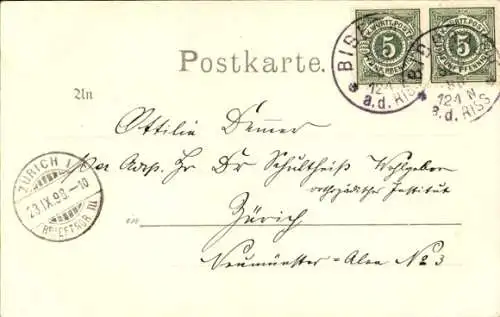 K. WÜRTT. POST
5
FÜNF PFENNIG
K. WÜRTT. POST
5
FÜNF PFENNIG
a.d. RISS
12-1 N
a.d. RISS
Postkarte.
An
Ottilie
per Adr. Hr Dr Schultheiß Wohlgeboren
orthopädisches Institut
in Zürich
Neumünster-Allee No 3
ZÜRICH
23.IX.98.-10
BRIEFTRÄGER III